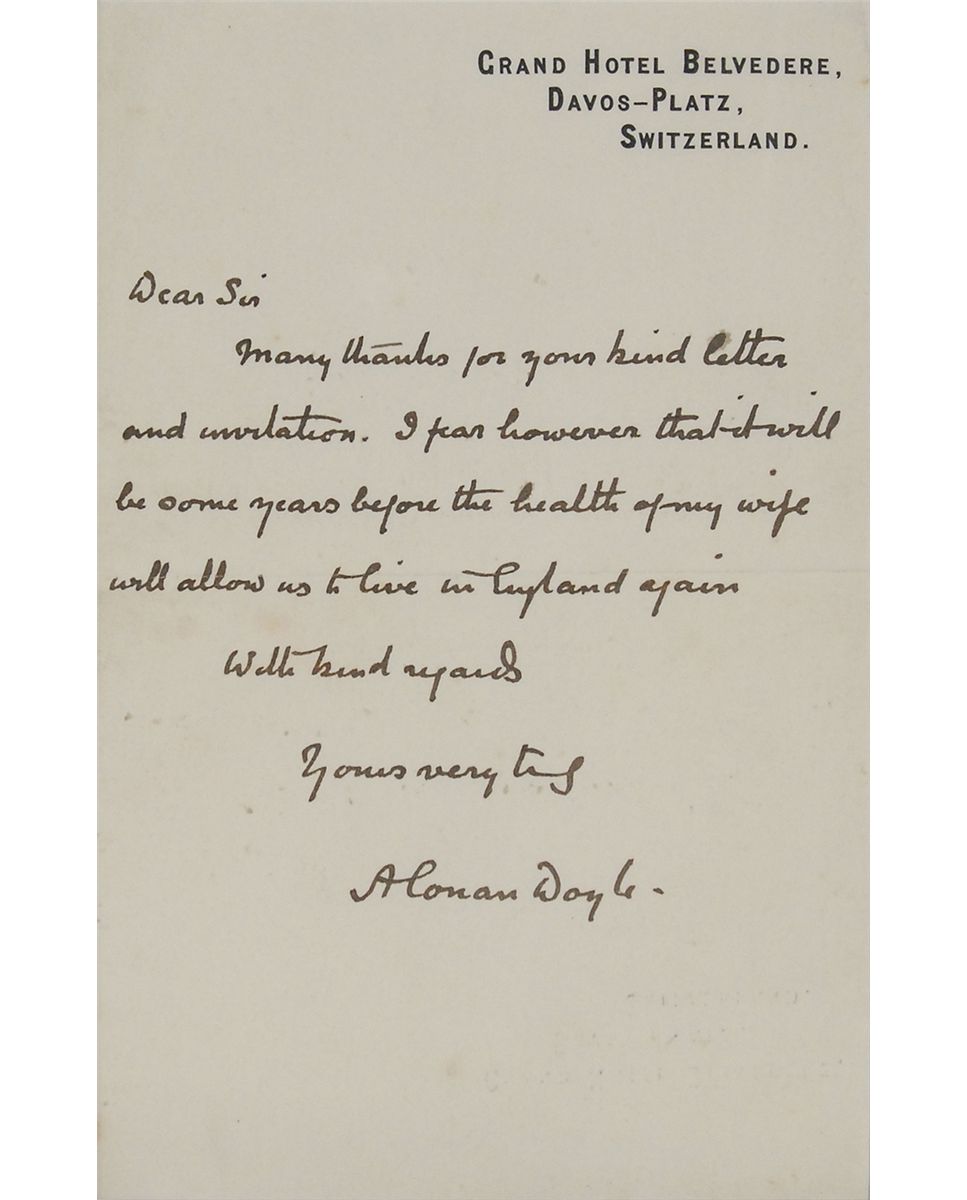 GRAND HOTEL BELVEDERE,
DAVOS-PLATZ,
SWITZERLAND.
Dear Sir
Many thanks for your kind letter
and invitation. I fear however that it will
be some years before the health of my wife
will allow us to live in England again
With kind regards
Yours very truly
A Conan Doyle.